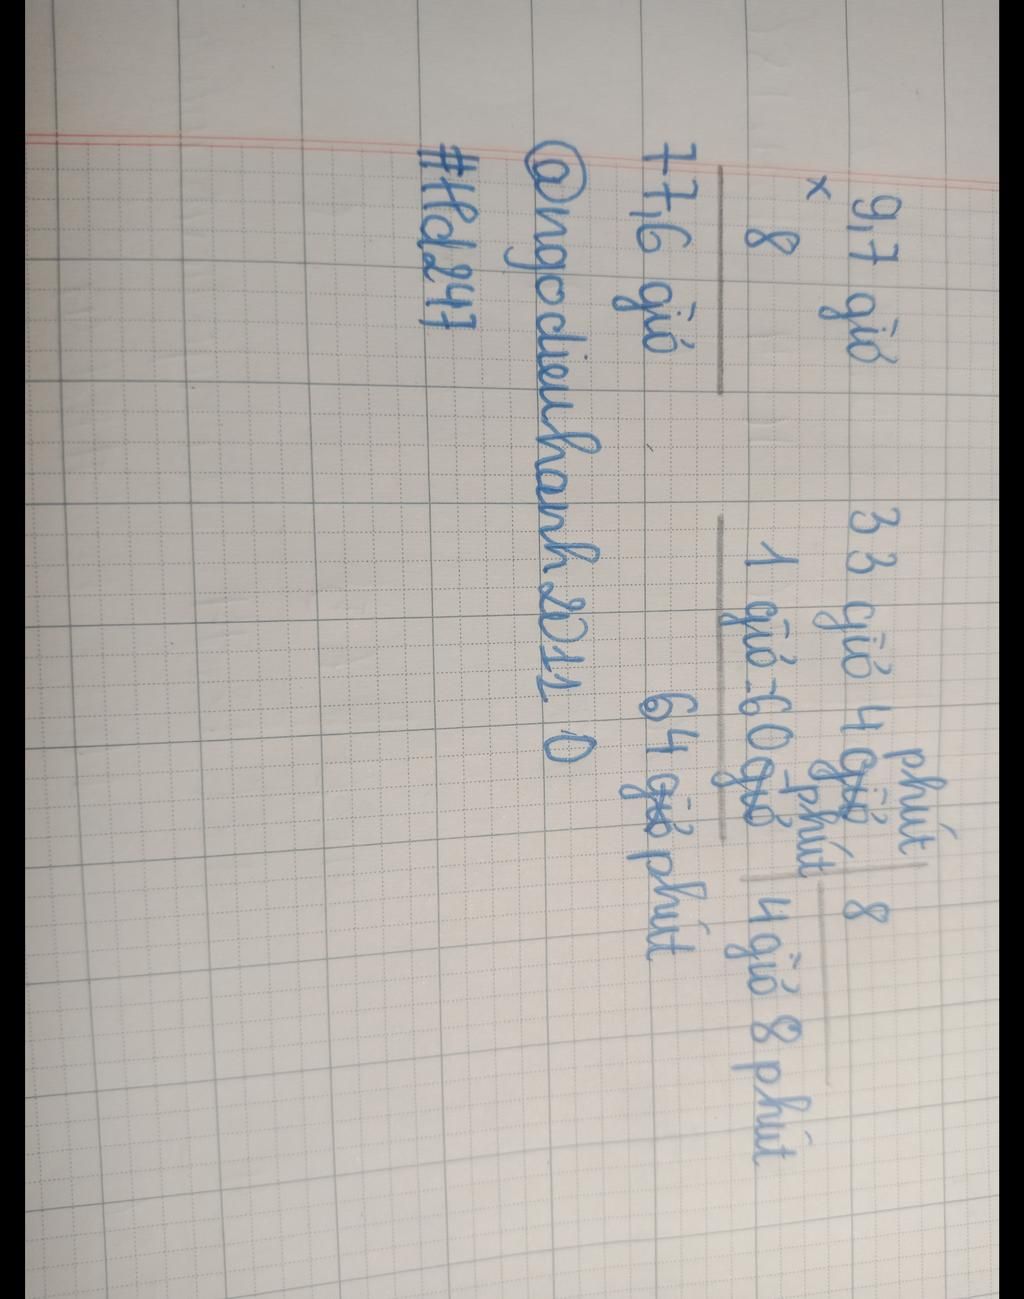 9,7 giờ
x
8
77,6 giờ
33 giờ 4 giờ phút 8
1 giờ = 60 giờ phút 4 giờ 8 phút
64 giờ phút
0
@ngodieuhanh2011
#Hd247